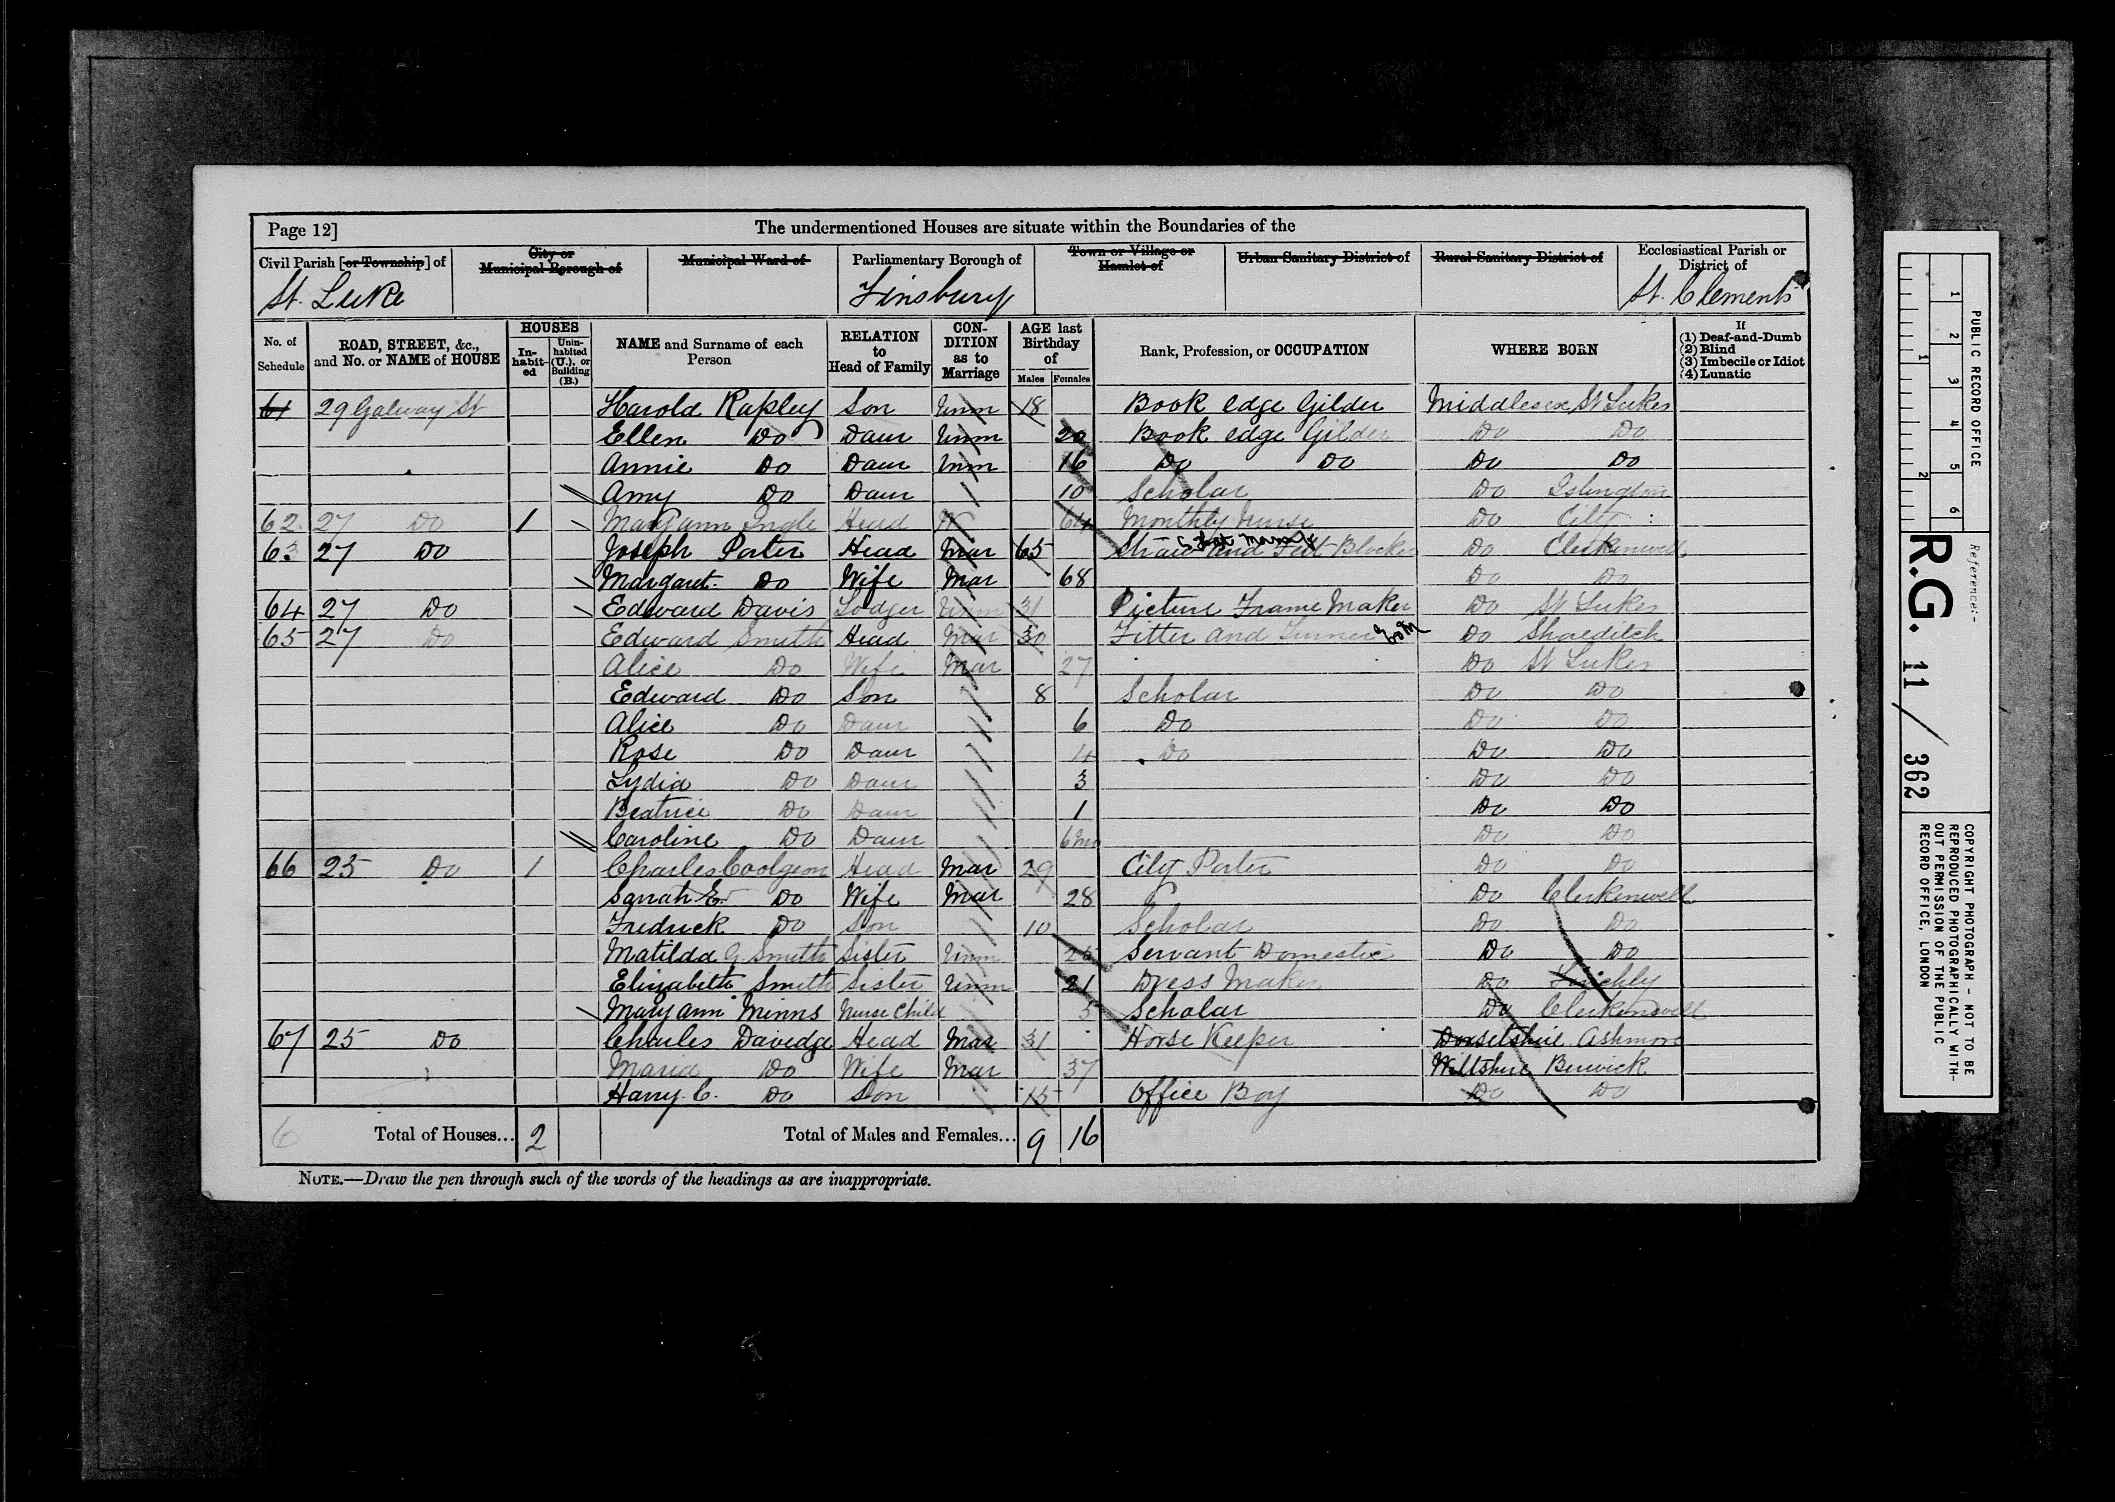 Page 12] The undermentioned Houses are situate within the Boundaries of the
Civil Parish [or Township] of
St. Luke
City or Municipal Borough of
Municipal Ward of
Parliamentary Borough of
Finsbury
Town or Village or Hamlet of
Urban Sanitary District of
Rural Sanitary District of
Ecclesiastical Parish or District of
St. Clements
No. of Schedule
ROAD, STREET, &c., and No. or NAME of HOUSE
HOUSES
In-habit-ed
Unin-habited (U.), or Building (B.)
NAME and Surname of each Person
RELATION to Head of Family
CON-DITION as to Marriage
AGE last Birthday of
Males Females
Rank, Profession, or OCCUPATION
WHERE BORN
If
(1) Deaf-and-Dumb
(2) Blind
(3) Imbecile or Idiot
(4) Lunatic
61 29 Galway St Harold Rapley Son Unm 18 Book edge Gilder Middlesex St Lukes
Ellen Do Daur Unm 20 Book edge Gilder Do Do
Annie Do Daur Unm 16 Do Do Do Do
Amy Do Daur 10 Scholar Do Islington
62 27 Do 1 Mary ann Ingle Head W 64 Monthly Nurse Do City
63 27 Do Joseph Porter Head Mar 65 Straw and Felt Blocker Do Clerkenwell
Margaret Do Wife Mar 68 Do Do
64 27 Do Edward Davis Lodger Unm 31 Picture Frame Maker Do St Lukes
65 27 Do Edward Smith Head Mar 30 Fitter and Turner Do Shoreditch
Alice Do Wife Mar 27 Do St Lukes
Edward Do Son 8 Scholar Do Do
Alice Do Daur 6 Do Do Do
Rose Do Daur 4 Do Do Do
Lydia Do Daur 3 Do Do
Beatrice Do Daur 1 Do Do
Caroline Do Daur 6mo Do Do
66 25 Do 1 Charles Head Mar 29 City Porter Do Do
Sarah E. Do Wife Mar 28 Do Clerkenwell
Fredrick Do Son 10 Scholar Do Do
Matilda G. Smith Sister Unm 25 Servant Domestic Do Do
Elizabeth Smith Sister Unm 21 Dress Maker Do Finchly
Mary ann Minns Nurse Child 5 Scholar Do Clerkenwell
67 25 Do Charles Davidge Head Mar 31 Horse Keeper Dorsetshire Ashmore
Maria Do Wife Mar 37 Wiltshire Berwick
Harry C. Do Son 15 Office Boy Do Do
6 Total of Houses... 2 Total of Males and Females... 9 16
NOTE.—Draw the pen through such of the words of the headings as are inappropriate.
PUBLIC RECORD OFFICE
1 2 3 4 5 6
1 2
Reference:-
R.G. 11 / 362
COPYRIGHT PHOTOGRAPH - NOT TO BE
REPRODUCED PHOTOGRAPHICALLY WITH-
OUT PERMISSION OF THE PUBLIC
RECORD OFFICE, LONDON